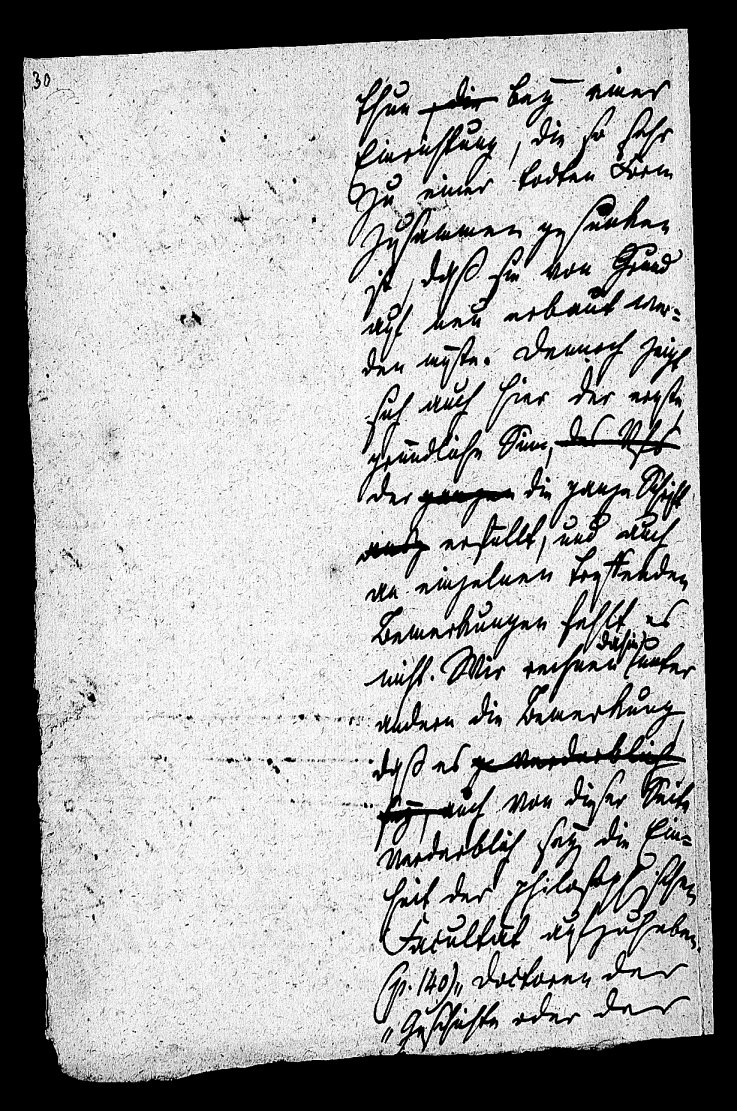 30
thun die bey einer
Einrichtung, die so sehr
zu einer todten Form
zusammen gesunken
ist, daß sie von Grund
auf neu erbaut wer=
den müßte. Dennoch zeigt
sich auch hier der ernste,
gründliche Sinn, des Vfs
der ganzen die ganze Schrift
erfüllt, und auch
an einzelnen treffenden
Bemerkungen fehlt es
nicht. Wir rechnen dahin unter
andern die Bemerkung,
daß es verderblich
sey, auch von dieser Seite
verderblich sey, die Ein=
heit der philosophischen
Facultät aufzuheben.
(p. 140) „Doctoren der
„Geschichte oder der